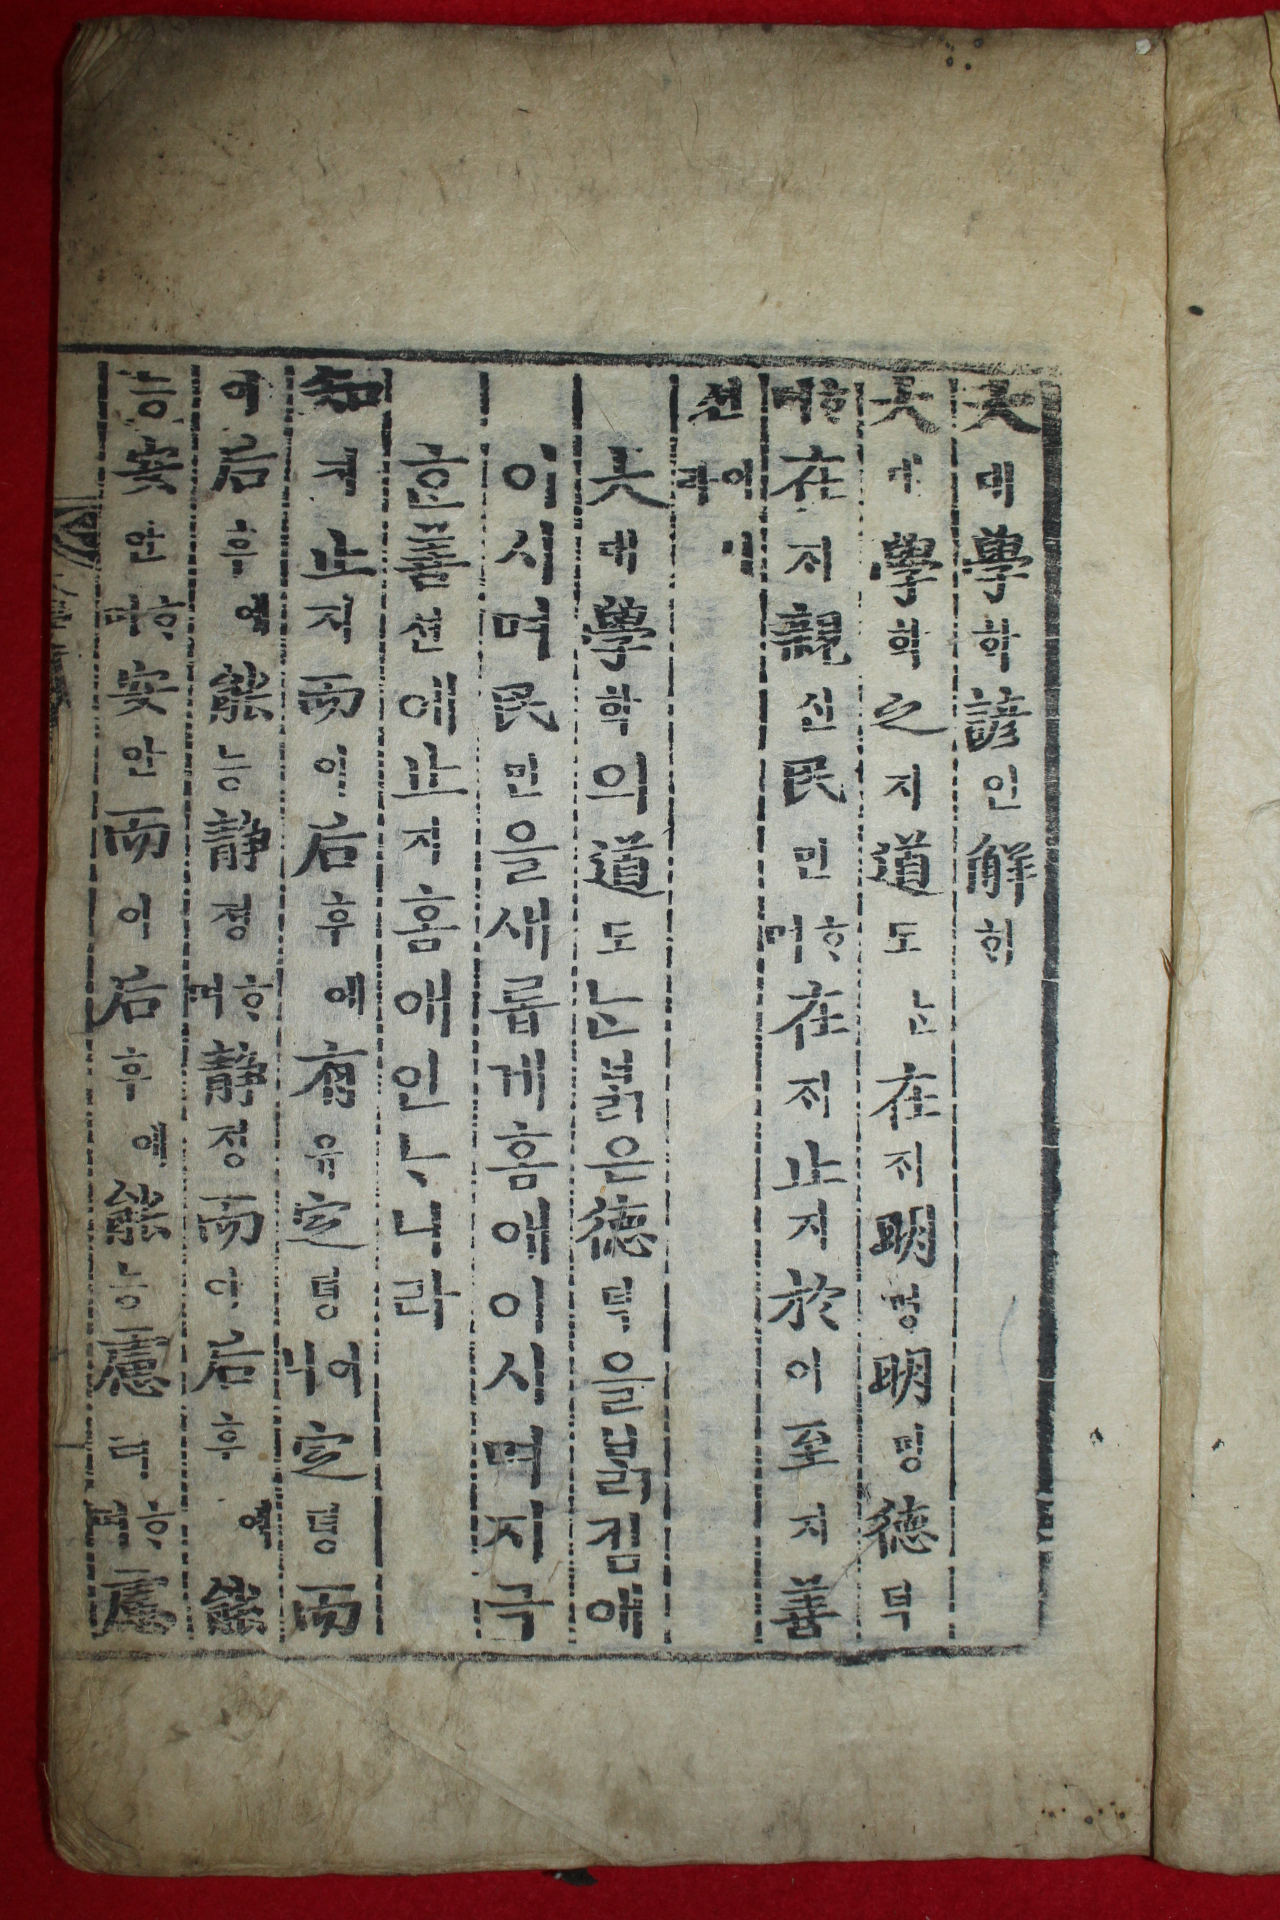 大대學학諺언解ᄒᆡ
大대學학之지道도ᄂᆞᆫ在ᄌᆡ明명明명德덕
ᄒᆞ며在ᄌᆡ親신民민ᄒᆞ며在ᄌᆡ止지於어至지善
션이니라
大대學학의道도ᄂᆞᆫᄇᆞᆰ은德덕을ᄇᆞᆯ킴애
이시며民민을새롭게홈애이시며지극
ᄒᆞᆫ善션에止지홈애인ᄂᆞ니라
知지止지而이后후에有유定뎡이니定뎡而
이后후에能능靜졍ᄒᆞ며靜졍而이后후에能
능安안ᄒᆞ며安안而이后후에能능慮려ᄒᆞ며慮